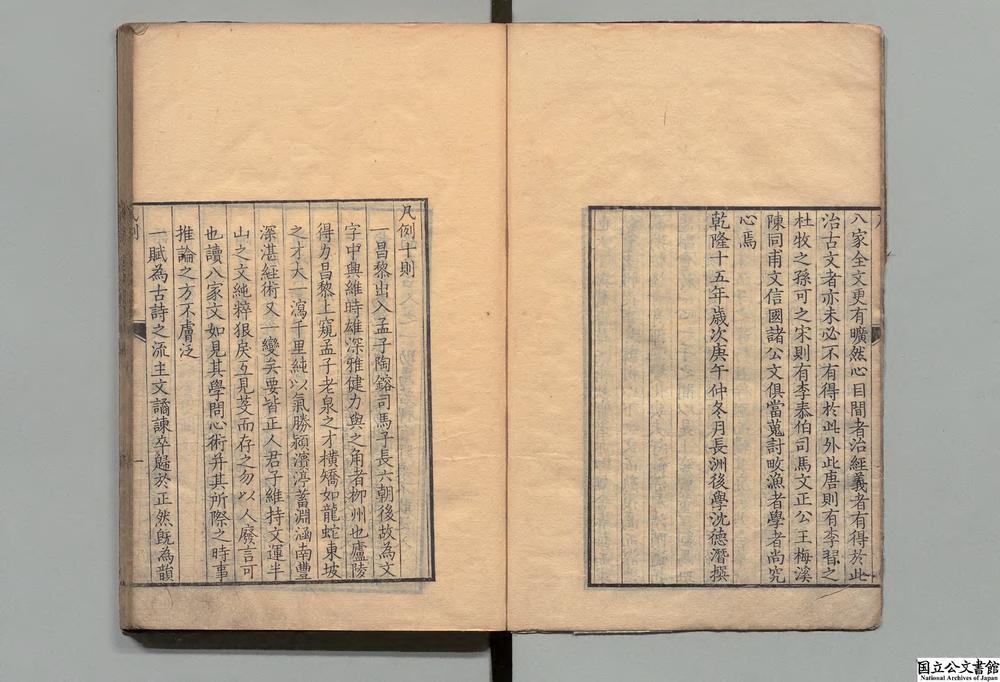 八家全文更有曠然心目間者治經義者有得於此
治古文者亦未必不有得於此外此唐則有李習之
杜牧之孫可之宋則有李泰伯司馬文正公王梅溪
陳同甫文信國諸公文俱當蒐討畋漁者學者尚究
心焉
乾隆十五年歲次庚午仲冬月長洲後學沈德潛撰
凡例十則
一昌黎出入孟子陶鎔司馬子長六朝後故為文
字中興維時雄深雅健力與之角者柳州也廬陵
得力昌黎上窺孟子老泉之才橫矯如龍蛇東坡
之才大一瀉千里純以氣勝潁濱渟蓄淵涵南豐
深湛經術又一變矣要皆正人君子維持文運半
山之文純粹狠戾互見芟而存之勿以人廢言可
也讀八家文如見其學問心術并其所際之時事
推論之方不膚泛
一賦為古詩之流主文譎諫卒歸於正然既為韻
国立公文書館
National Archives of Japan